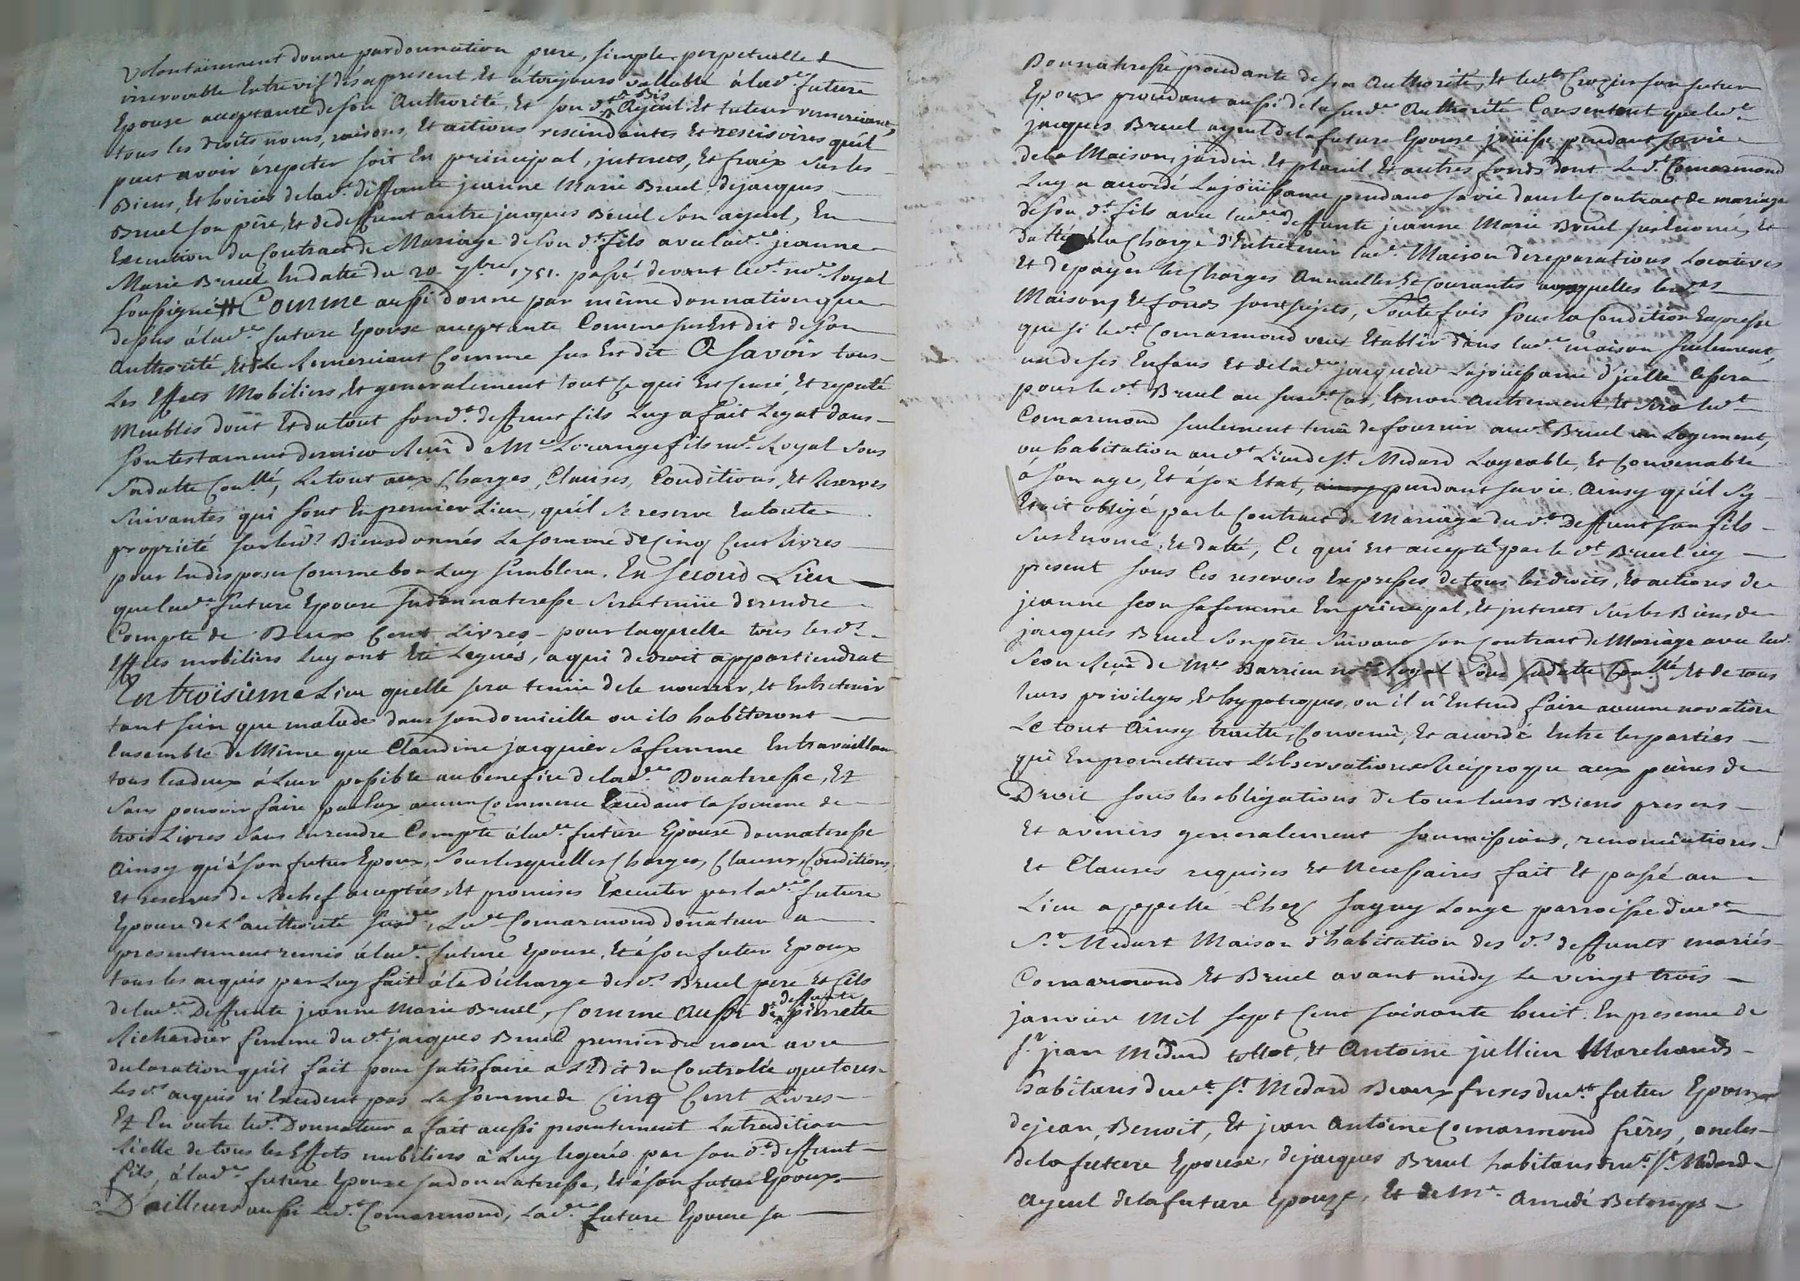 volontairement donne par donnation pure, simple perpetuelle &
irrevocable Entrevif dés apresent, Et atoujours vallable à lad.e future
Epouse acceptante de son Authorité, Et son d.t Ayeul, Et tuteur remerciant,
tous les droits noms, raisons, Et actions rescindantes Et rescisoires qu'il
peut avoir à repeter soit En principal, interets, Et fraix sur les
Biens, Et hoiries de lad.e deffunte jeanne Marie Bruel, de jacques
Bruel son pere, Et de deffunt autre jacques Bruel son ayeul, En
Execution du Contract de Mariage de son d.t fils avec lad.e jeanne
Marie Bruel En datte du 20 7bre 1751. passé devant led.t no.re Royal
soussigné # Comme aussi donne par même donnation que
dessus à lad.e future Epouse acceptante Comme sus Est dit de son
Authorité, Et Le Remerciant Comme sus Est dit A Savoir tous
Les Effets Mobiliers, Et generalement tout ce qui Est censé, Et reputé
Meubles dont Et du tout son d.t deffunt fils Luy a fait Legat dans
son testament dernier Reçu d M.e Lorange fils no.re Royal sous
sa datte Con.llé, Le tout aux Charges, Clauses, Conditions, Et Reserves
suivantes qui sont En premier Lieu, qu'il se reserve En toute
propriété sur lesd.s Biens donnés La somme de Cinq Cent Livres
pour En disposer Comme bon Luy semblera. En second Lieu
que lad.e future Epouse sa donnateresse sera tenüe de rendre
Compte de Deux Cent Livres pour laquelle tous lesd.s
Effets mobiliers luy ont Eté Legués, a qui de droit appartiendrat
En troisième Lieu quelle sera tenüe de le nourrir, Et Entretenir
tant sein que malade dans son domicille ou ils habiteront
Ensemble de Même que Claudine jacquier sa femme En travaillan
tous les deux a Leur possible au benefice de lad.e Donateresse, Et
sans pouvoir faire par Eux aucun Commerce Excedant la somme de
trois Livres sans En rendre Compte à lad.e future Epouse donnateresse
Ainsy qu'à son futur Epoux, sous lesquelles Charges, Clauses, Conditions,
Et reserves de Rechef acceptées, Et promises Executer par lad.e future
Epouse de l'authorité susd.e, Led.t Comarmond donateur a
presentement remis à lad.e future Epouse, Et à son futur Epoux
tous les acquis par Luy fait à la décharge des d.s Bruel pere Et fils
de lad.e Deffunte jeanne Marie Bruel, Comme Aussi de deffunte pierrette
Richardier femme du d.t jacques Bruel premier du nom avec
declaration qu'il fait pour satisfaire a L'Edit du Controlle que tous
les d.s acquis n'Excedent pas La somme de Cinq Cent Livres
Et En outre led.t Donnateur a fait aussi presentement La tradition
Réelle de tous les Effets mobiliers à Luy legués par son d.t deffunt
fils, à lad.e future Epouse sa donnateresse, Et à son futur Epoux
D'ailleurs aussi Led.t Comarmond, Lad.e future Epouse sa
Donnateresse procedante de son Authorité, Et led.t Crozier son futur
Epoux procedant aussi de la susd.e Authorité Consentent que led.t
jacques Bruel ayeul de la future Epouse joüisse pendant sa vie
de la Maison, jardin, Et plantil, Et autres fonds dont Le d.t Comarmond
Luy a accordé La joüissance pendant sa vie dans le Contract de mariage
de son d.t fils avec lad.e deffunte jeanne Marie Bruel sus Enoncé, Et
datté à la Charge d'Entretenir lad.e Maison de reparations Locatives
Et de payer les Charges Annuelles, Et Courantes auxquelles lesd.s
Maison, Et fonds sont sujets, Toutefois sous la Condition Expresse
que si le d.t Comarmond veut Etablir dans lad.e maison seulement
un de ses Enfans Et de lad.e jacquier La joüissance d'icelle Cessera
pour le d.t Bruel au susd.t Cas, Et non Autrement, Et sera led.t
Comarmond seulement tenû de fournir aud.t Bruel un Logement,
ou habitation au d.t Lieu de S.t Medard Logeable, Et Convenable
à son age, Et à son Etat, pendant sa vie. Ainsy qu'il s'y
Etoit obligé par le Contract de Mariage du d.t Deffunt son fils
sus Enoncé, Et datté, Ce qui Est accepté par le d.t Bruel icy
present sous les reserves Expresses de tous les droits, Et actions de
jeanne Seon sa femme En principal, Et interets sur les Biens de
jacques Bruel son pere suivant son Contract de Mariage avec lad.
Seon Reçu de M.e Barrieu no.re Royal sous sa datte Con.llé Et de tous
leurs privileges, Et hypoteques, ou il n'Entend faire aucune novation
Le tout Ainsy traitté, Convenû, Et accordé Entre les parties
qui En promettent L'observation Reciproque aux peines de
Droit sous les obligations de tous leurs Biens presens
Et avenirs generalement soumissions, renonciations
Et Clauses requises Et Necessaires fait Et passé au
Lieu appellé Chez Jaguy Longe parroisse dud.t
S.t Medart Maison d'habitation des d.s deffunts mariés
Comarmond Et Bruel avant midy le vingt trois
janvier Mil sept Cent soixante huit. En presence de
S.r jean Médard tollot, Et Antoine jullien Marchands
habitans dud.t S.t Medard Beaux freres dud.t futur Epoux
de jean, Benoit, Et jean Antoine Comarmond frères, oncles
de la future Epouse, de jacques Bruel habitans dud.t S.t Medard
ayeul de la future Epouse, Et de M.e Amedé